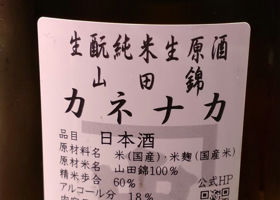 生酛純米生原酒
山田錦
カネナカ
品目 日本酒
原材料名 米(国産)・米麹(国産米)
原材米名 山田錦100%
精米歩合 60%
アルコール分 18%
公式HP